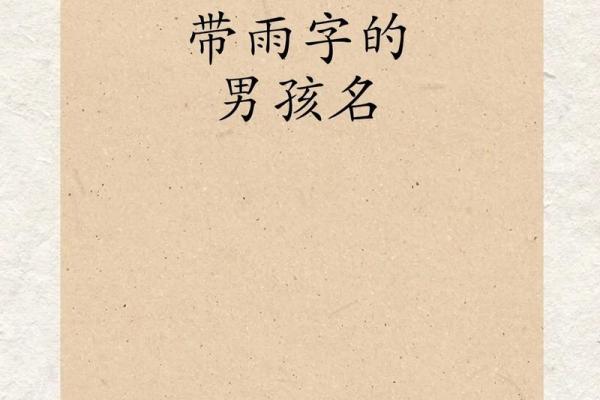 带雨字的
男孩名